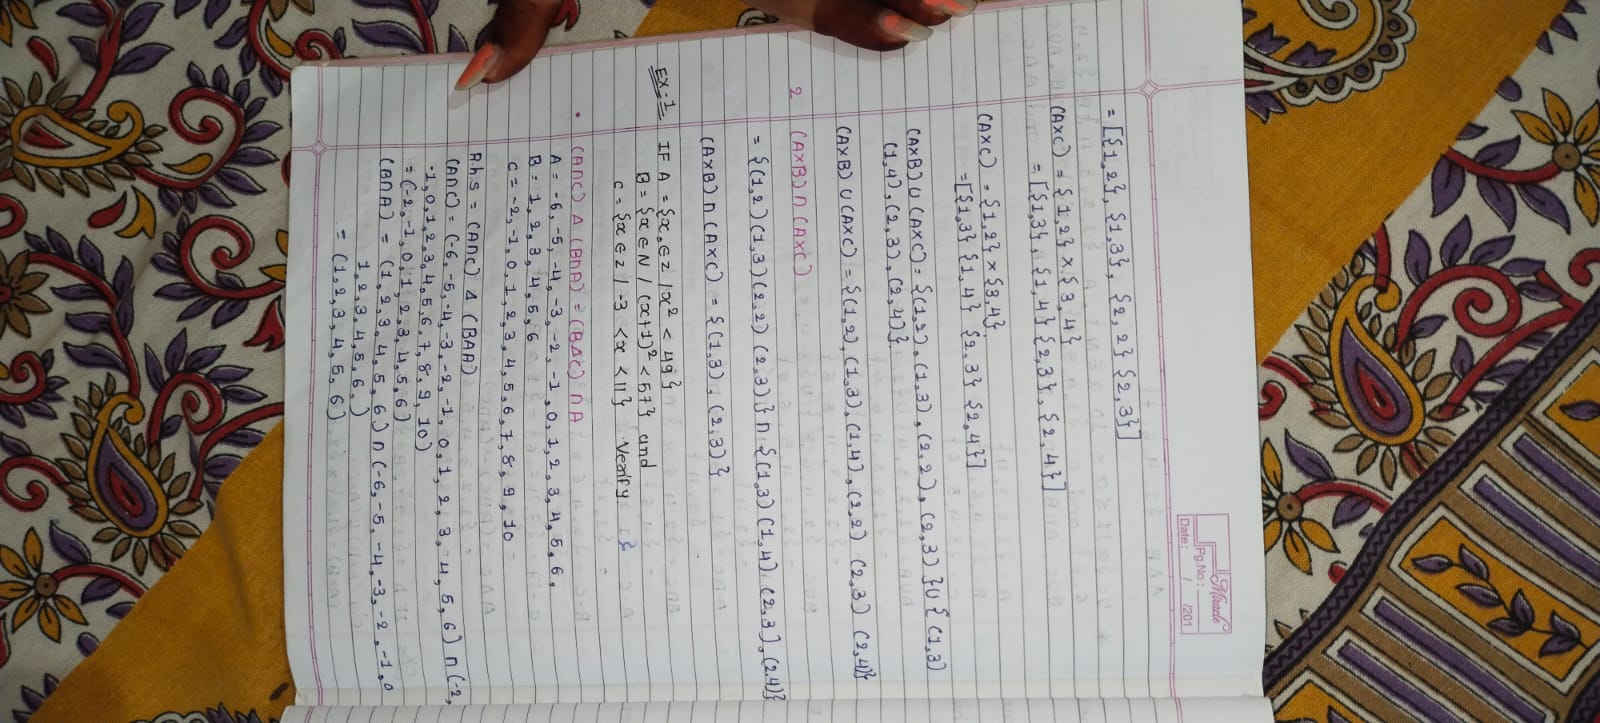 Mirado
Pg.No :
Date: / /201
= [{1,2}, {1,3}, {2,2} {2,3}]
(A×C) = {1,2} × {3,4}
= [{1,3}, {1,4} {2,3}, {2,4}]
(A×C) = {1,2} × {3,4}
= [{1,3} {1,4} {2,3} {2,4}]
(A×B) ∪ (A×C) = {(1,2), (1,3), (2,2), (2,3)} ∪ {(1,3)
(1,4), (2,3), (2,4)}
(A×B) ∪ (A×C) = {(1,2), (1,3), (1,4), (2,2) (2,3) (2,4)}
2 (A×B) ∩ (A×C)
= {(1,2) (1,3) (2,2) (2,3)} ∩ {(1,3) (1,4) (2,3), (2,4)}
(A×B) ∩ (A×C) = {(1,3), (2,3)}
Ex:1 IF A = {x ∈ z | x² < 49}
B = {x ∈ N / (x+1)² < 57} and
C = {x ∈ z / -3 < x < 11} Verify
(A∩C) Δ (B∩A) = (BΔC) ∩ A
A = -6, -5, -4, -3, -2, -1, 0, 1, 2, 3, 4, 5, 6,
B = 1, 2, 3, 4, 5, 6
C = -2, -1, 0, 1, 2, 3, 4, 5, 6, 7, 8, 9, 10
Rhs = (A∩C) Δ (B∩A)
(A∩C) = (-6, -5, -4, -3, -2, -1, 0, 1, 2, 3, 4, 5, 6) ∩ (-2,
-1, 0, 1, 2, 3, 4, 5, 6, 7, 8, 9, 10)
= (-2, -1, 0, 1, 2, 3, 4, 5, 6)
(B∩A) = (1, 2, 3, 4, 5, 6) ∩ (-6, -5, -4, -3, -2, -1, 0
1, 2, 3, 4, 5, 6,)
= (1, 2, 3, 4, 5, 6)